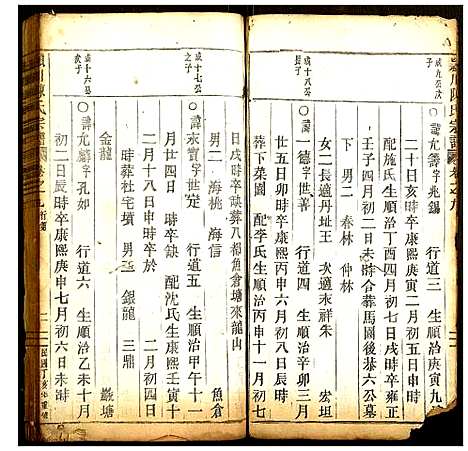 潁川陳氏宗譜 卷之九
成九公次
○諱允鸞字兆錫 行道三 生順治庚寅九
十寅時卒康熙庚寅二月初五日申時
配施氏生順治丁酉四月初七日戌時卒雍正
壬子四月初二日未時合葬馬園後恭六公墓
下 男二 春林 仲林
女二長適丹址王 次適末祥朱 宏坦
成十八公
○諱一德字世善 行道四 生順治辛卯三月
廿五日卯時卒康熙丙申六月初八日辰時
葬下菜園 配李氏生順治丙申十一月初七
日戌時卒缺葬八都魚倉塘來龍山
男二 海桃 海信 魚倉
成十七公之子
○諱永寶字世定 行道五 生順治甲午十一
月廿四日 時卒缺 配沈氏生康熙壬寅十
二月十八日申時卒於 二月初四日
時葬社宅墳 男三 銀龍 三鼎
金龍 嚴塘
成十六公次子
○諱允麟字孔如 行道六 生順治乙未十月
初二日辰時卒康熙庚申七月初六日未時